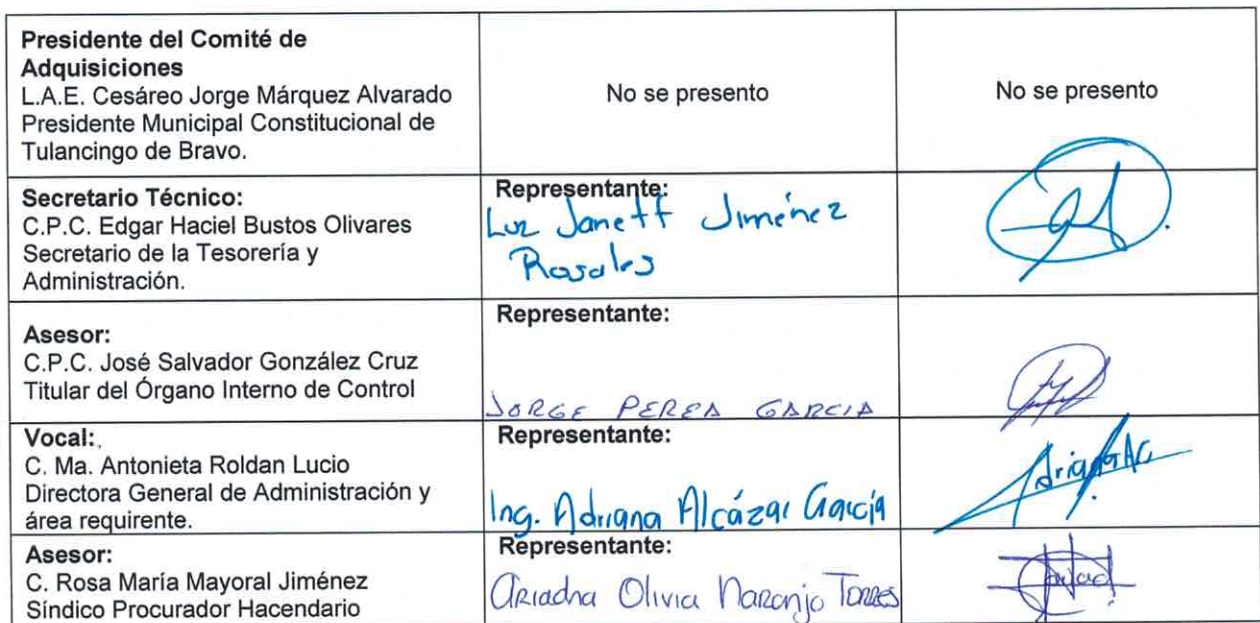 Presidente del Comité de
Adquisiciones
L.A.E. Cesáreo Jorge Márquez Alvarado
Presidente Municipal Constitucional de
Tulancingo de Bravo.
No se presento
No se presento
Secretario Técnico:
C.P.C. Edgar Haciel Bustos Olivares
Secretario de la Tesorería y
Administración.
Representante:
Luz Janett Jiménez
Rosales
Asesor:
C.P.C. José Salvador González Cruz
Titular del Órgano Interno de Control
Representante:
JORGE PEREA GARCIA
Vocal:
C. Ma. Antonieta Roldan Lucio
Directora General de Administración y
área requirente.
Representante:
Ing. Adriana Alcázar García
Asesor:
C. Rosa María Mayoral Jiménez
Síndico Procurador Hacendario
Representante:
Ariadna Olivia Naranjo Torres